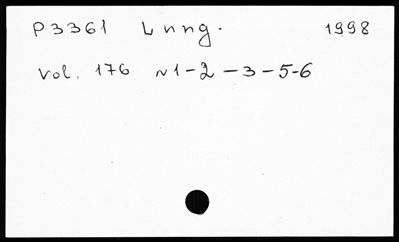 P3361 Lung. 1998
Vol. 176 N1-2-3-5-6